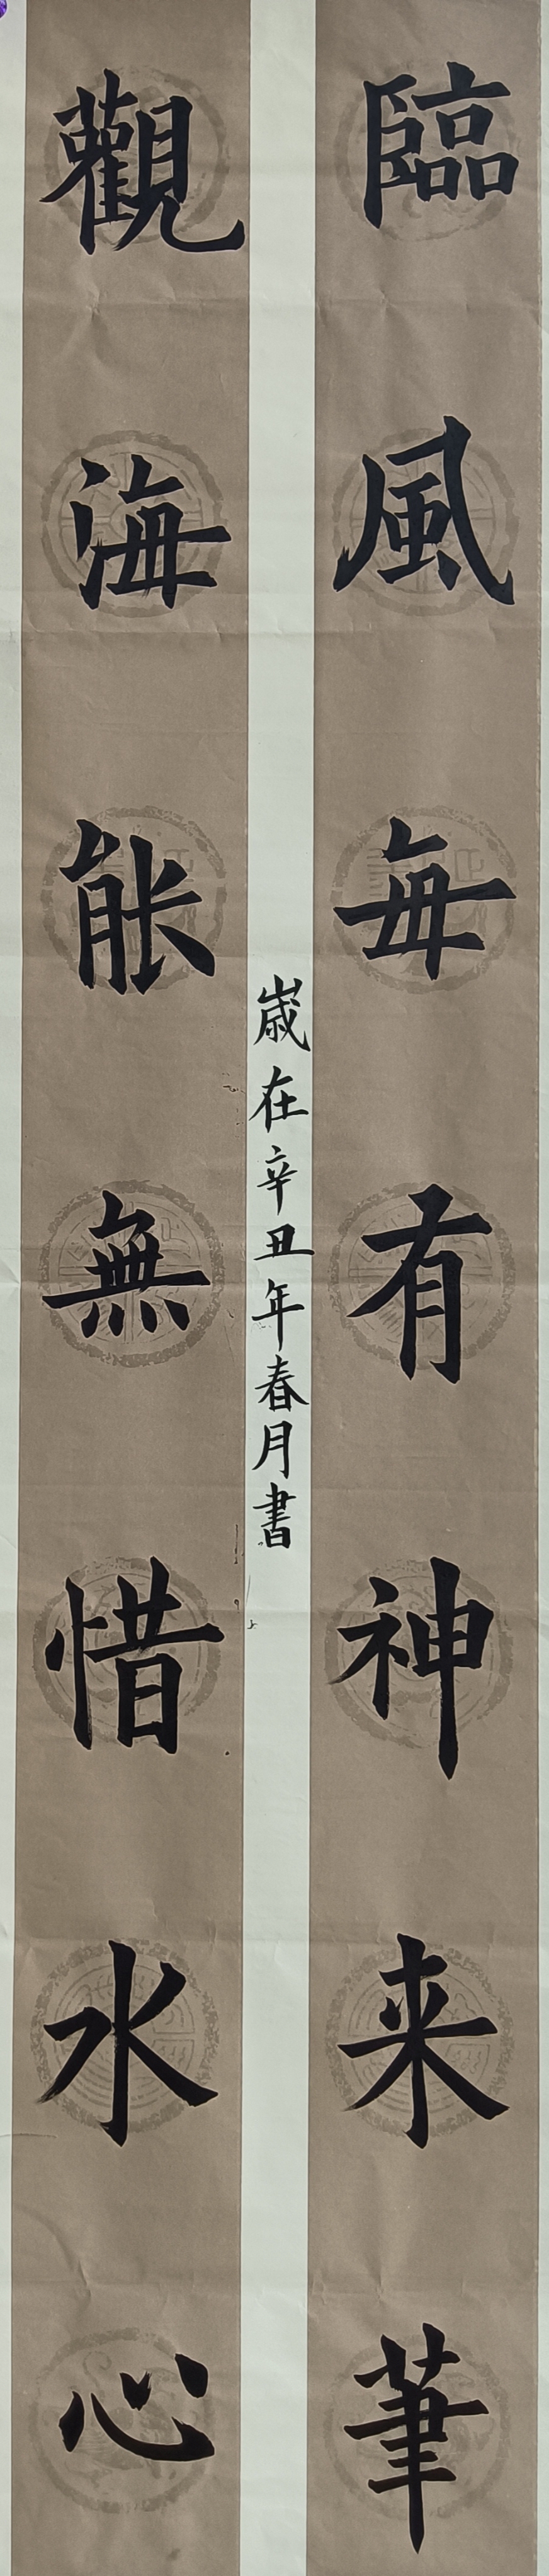 臨風每有神来筆
觀海能無惜水心
歲在辛丑年春月書